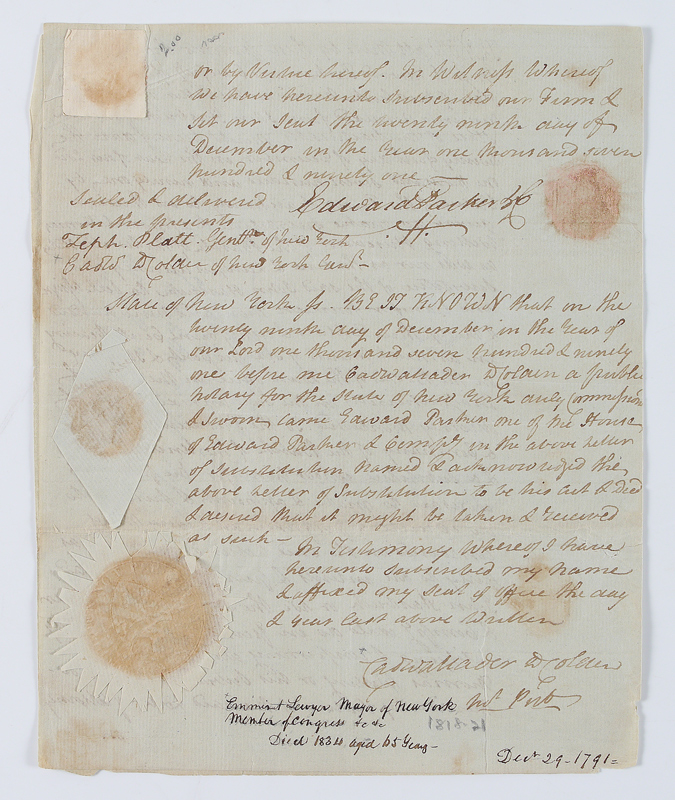 2.00
or by Virtue hereof. In Witness Whereof
we have hereunto Subscribed our Firm &
Set our Seal the twenty ninth day of
December in the Year one thousand seven
hundred & ninety one —
Sealed & delivered
in the presents
Edward Parker & Co
Jeph. Platt. Gentn. of New York
Cadw D Colden of New York Esqr.
State of New York Ss. BE IT KNOWN that on the
twenty ninth day of December in the Year of
our Lord one thousand seven hundred & ninety
one before me Cadwallader D Colden a Public
notary for the State of New York duly Commission
& Sworn Came Edward Parker one of the House
of Edward Parker & Compy in the above Letter
of Substitution Named & acknowledged the
above Letter of Substitution to be his Act & Deed
& desired that it might be taken & received
as such —
In Testimony Whereof I have
hereunto Subscribed my Name
& affixed my Seal of Office the day
& Year Last above Written
Cadwallader D Colden
Not Pub
Eminent Lawyer Mayor of New York
Member of Congress &c &c
Died 1834 aged 65 Years -
14-8181
Decr 29 - 1791 =